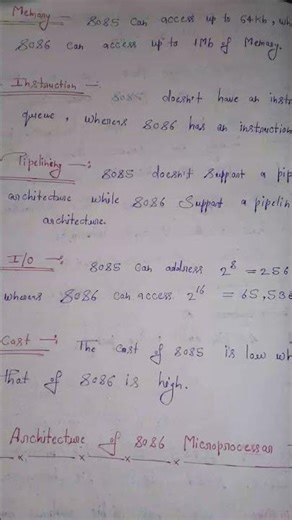 Memory -: 8085 can access up to 64Kb, wh
8086 can access up to 1Mb of Memory.
Instruction -: 8085 doesn't have an instr
queue, whereas 8086 has an instruction
Pipelining -: 8085 doesn't support a pip
architecture while 8086 support a pipelin
architecture.
I/O -: 8085 can address 2^8 = 256
whereas 8086 can access 2^16 = 65,536
Cost -: The cost of 8085 is low wh
that of 8086 is high.
Architecture of 8086 Microprocessor -